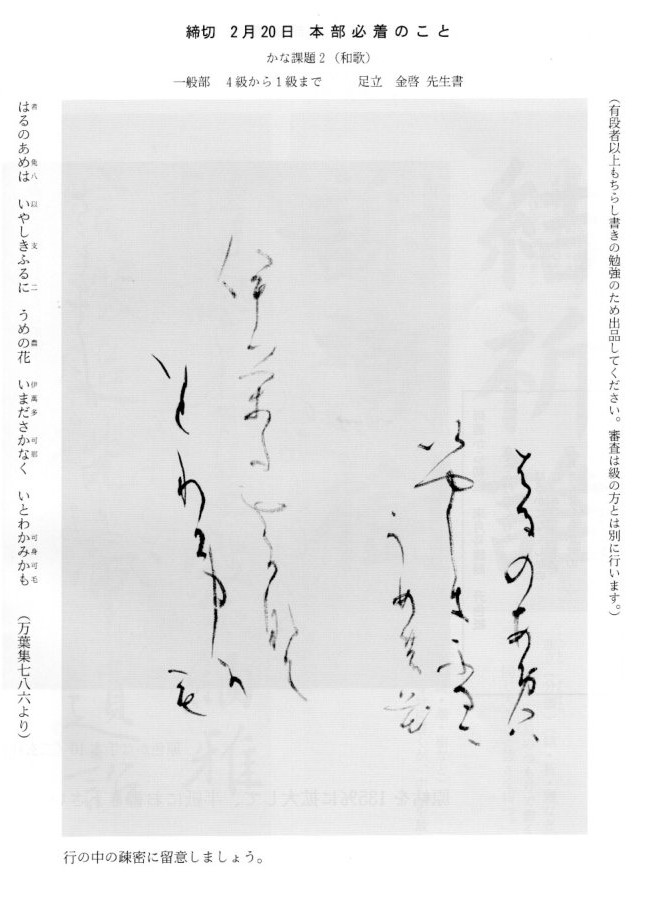 締切　2月20日　本部必着のこと
かな課題2（和歌）
一般部　4級から1級まで　足立　金啓 先生書
（有段者以上もちらし書きの勉強のため出品してください。審査は級の方とは別に行います。）
者るのあ免八
以やし支ふる二
うめ農花
伊萬多さ可那く
いとわ可身可
毛
はるのあめは　いやしきふるに　うめの花　いまださかなく　いとわかみかも　（万葉集七八六より）
行の中の疎密に留意しましょう。